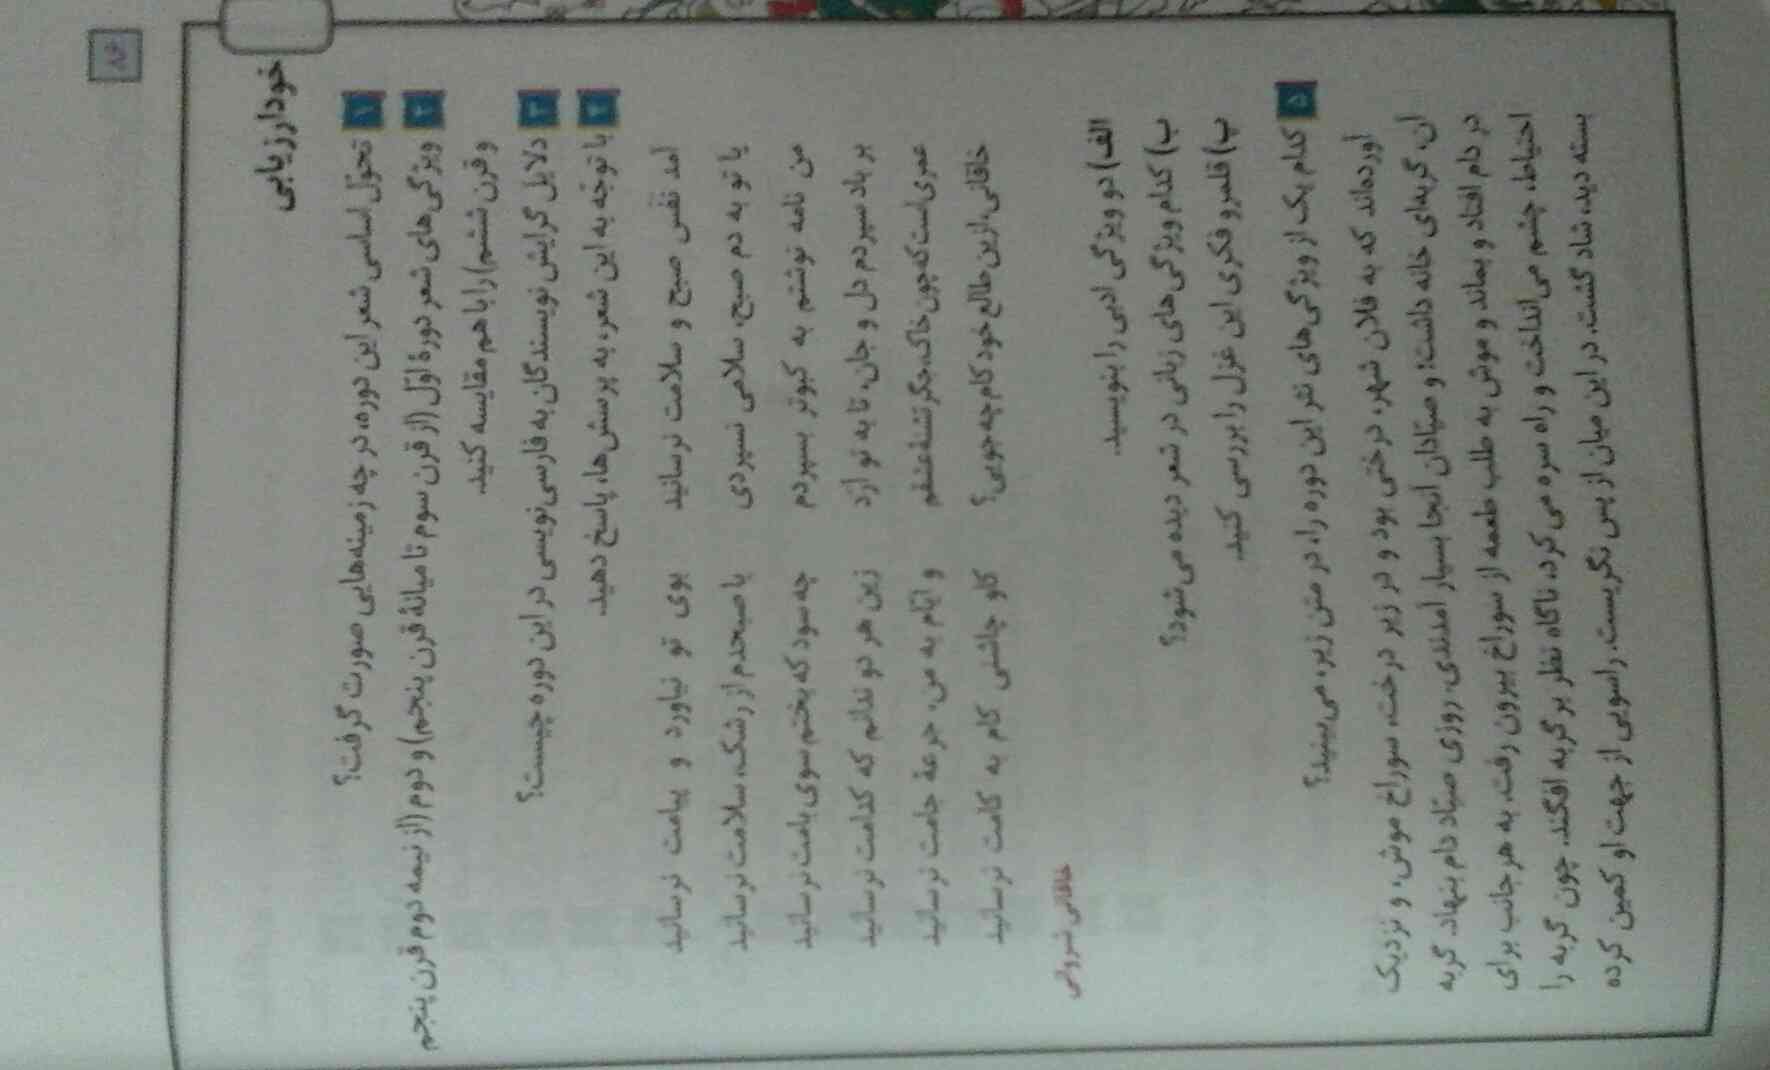 خودارزیابی
۱ تحوّل اساسی شعر این دوره، در چه زمینه‌هایی صورت گرفت؟
۲ ویژگی‌های شعر دورهٔ اوّل (از قرن سوم تا میانهٔ قرن پنجم) و دوم (از نیمه دوم قرن پنجم
و قرن ششم) را با هم مقایسه کنید.
۳ دلایل گرایش نویسندگان به فارسی‌نویسی در این دوره چیست؟
۴ با توجّه به این شعر، به پرسش‌ها، پاسخ دهید.
آمد نفس صبح و سلامت نرسانید بوی تو نیاورد و پیامت نرسانید
یا تو به دم صبح، سلامی نسپردی یا صبحدم از رشک، سلامت نرسانید
من نامه نوشتم به کبوتر بسپردم چه سود که بختم سوی بامت نرسانید
بر باد سپردم دل و جان، تا به تو آرد زین هر دو ندانم که کدامت نرسانید
عمری است که چون خاک، جگر تشنهٔ عشقم و ایّام به من، جرعهٔ جامت نرسانید
خاقانی، ازین طالع خود کام چه جویی؟ کاو چاشنی کام به کامت نرسانید
خاقانی شروانی
الف) دو ویژگی ادبی را بنویسید.
ب) کدام ویژگی‌های زبانی در شعر دیده می‌شود؟
پ) قلمرو فکری این غزل را بررسی کنید.
۵ کدام یک از ویژگی‌های نثر این دوره را، در متن زیر، می‌بینید؟
آورده‌اند که به فلان شهر، درختی بود و در زیر درخت، سوراخ موش، و نزدیک
آن، گربه‌ای خانه داشت؛ و صیّادان آنجا بسیار آمدندی. روزی صیّاد دام بنهاد. گربه
در دام افتاد و بماند و موش به طلب طعمه از سوراخ بیرون رفت. به هر جانب برای
احتیاط، چشم می‌انداخت و راه سره می‌کرد. ناگاه نظر بر گربه افکند. چون گربه را
بسته دید، شاد گشت. در این میان از پس نگریست، راسویی از جهت او کمین کرده